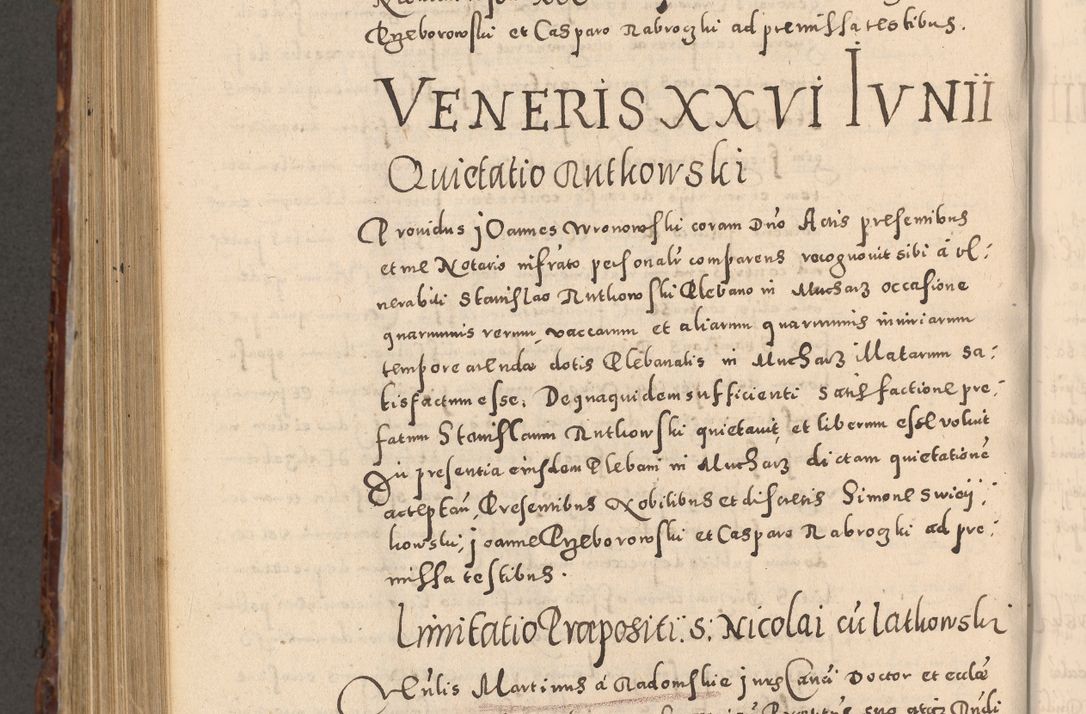 Przeborowski et Casparo Nabroczki ad premissa testibus.
VENERIS XXVI IVNII
Quietatio Rutkowski
Providus Joannes Wronowski coram Dno Actis presentibus
et me Notario infrato personalr comparens recognovit sibi a ve:
nerabili Stanislao Rutkowski Plebano in Mucharz occasione
quarumvis rerum, vaccarum et aliarum quarumvis iniuriarum
tempore arendae dotis Plebanalis in Mucharz Illatarum sa:
tisfactum esse. De qua quidem sufficienti satisfactione pre:
fatum Stanislaum Rutkowski quietavit, et liberum esse voluit
In presentia eiusdem Plebani in Mucharz dictam quietationē
acceptan, Presentibus Nobilibus et discretis Simone Swiey:
kowski, Joanne Przeborowski et Casparo Nabroczki ad pre:
missa testibus.
Limitatio Praepositi. S. Nicolai cū Latkowski
Martinus á Radomskie jurs Canēi Doctor et ecclae